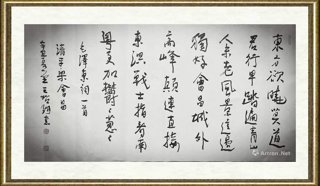 東方欲曉莫道
君行早踏遍青山
人未老風景這邊
獨好會昌城外
高峰顛連直接
東溟戰士指看南
粵更加鬱々葱々
毛澤東詞一首
清平樂會昌
Artron.Net